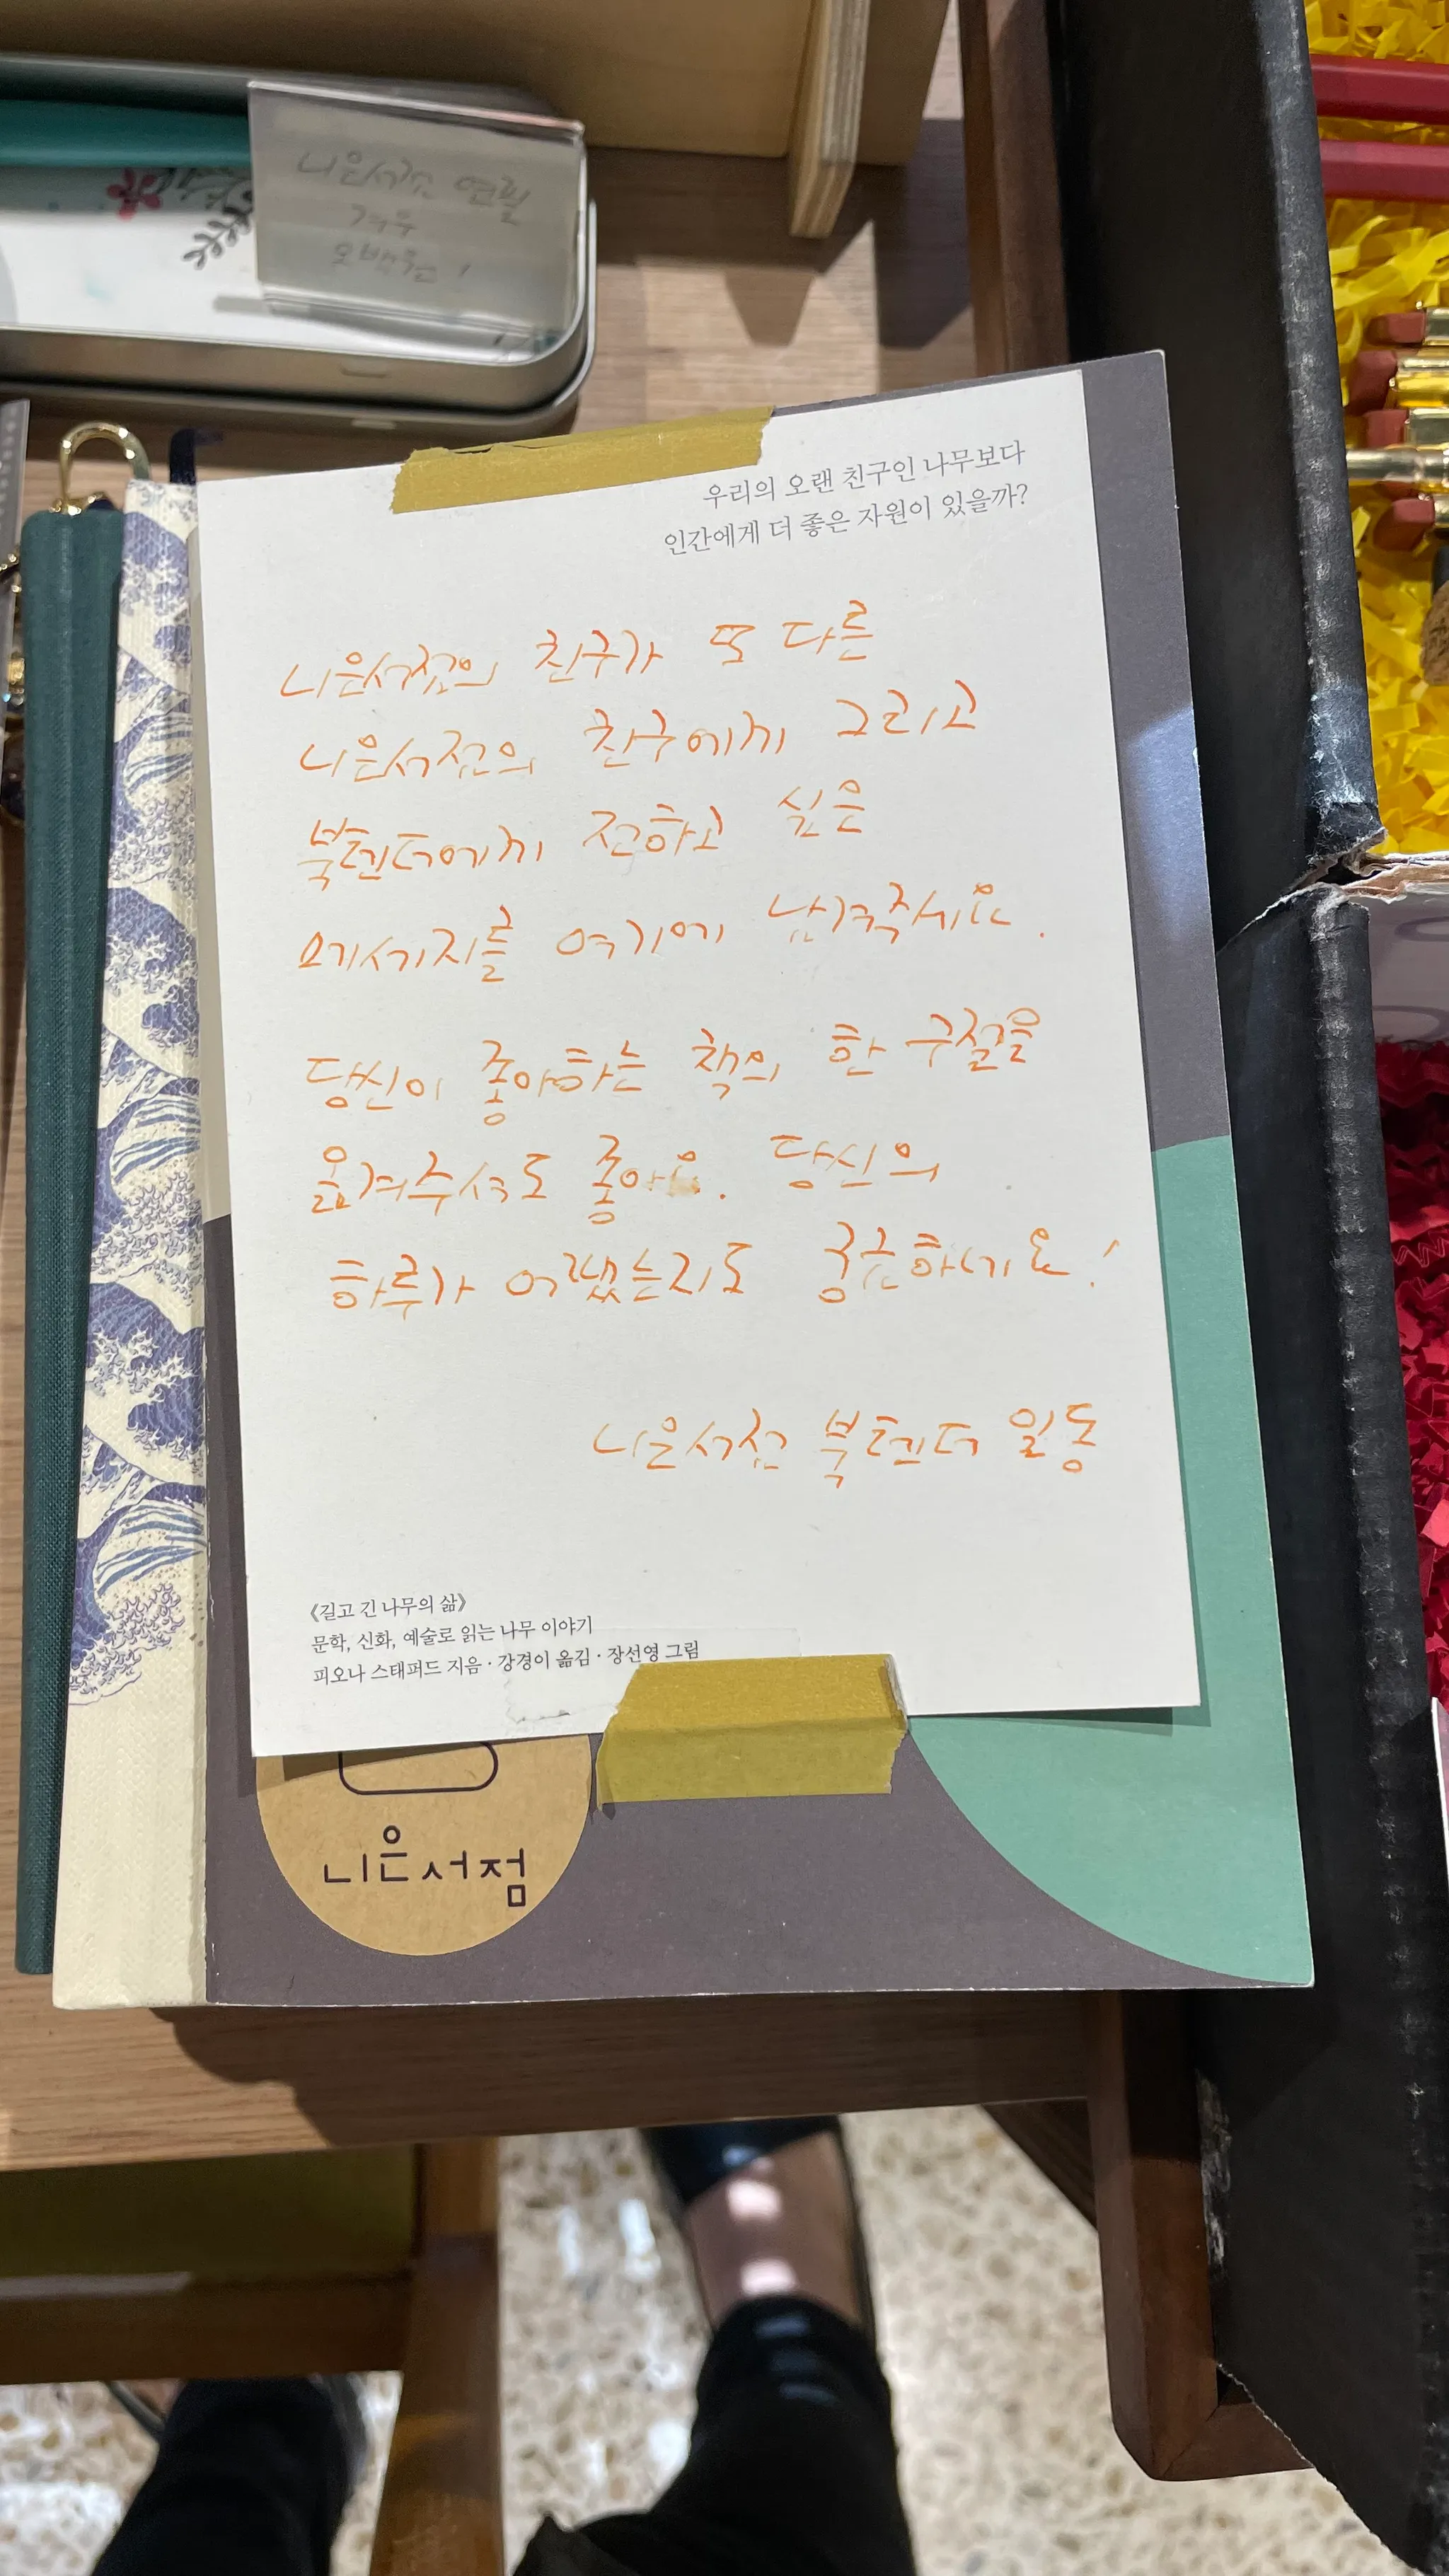 니은서점 연필
겨우
오백원!
우리의 오랜 친구인 나무보다
인간에게 더 좋은 자원이 있을까?
니은서점의 친구가 또 다른
니은서점의 친구에게 그리고
북텐더에게 전하고 싶은
메세지를 여기에 남겨주세요.
당신이 좋아하는 책의 한 구절을
옮겨주셔도 좋아요. 당신의
하루가 어땠는지도 궁금하네요!
니은서점 북텐더 일동
《길고 긴 나무의 삶》
문학, 신화, 예술로 읽는 나무 이야기
피오나 스태퍼드 지음 · 강경이 옮김 · 장선영 그림
니은서점